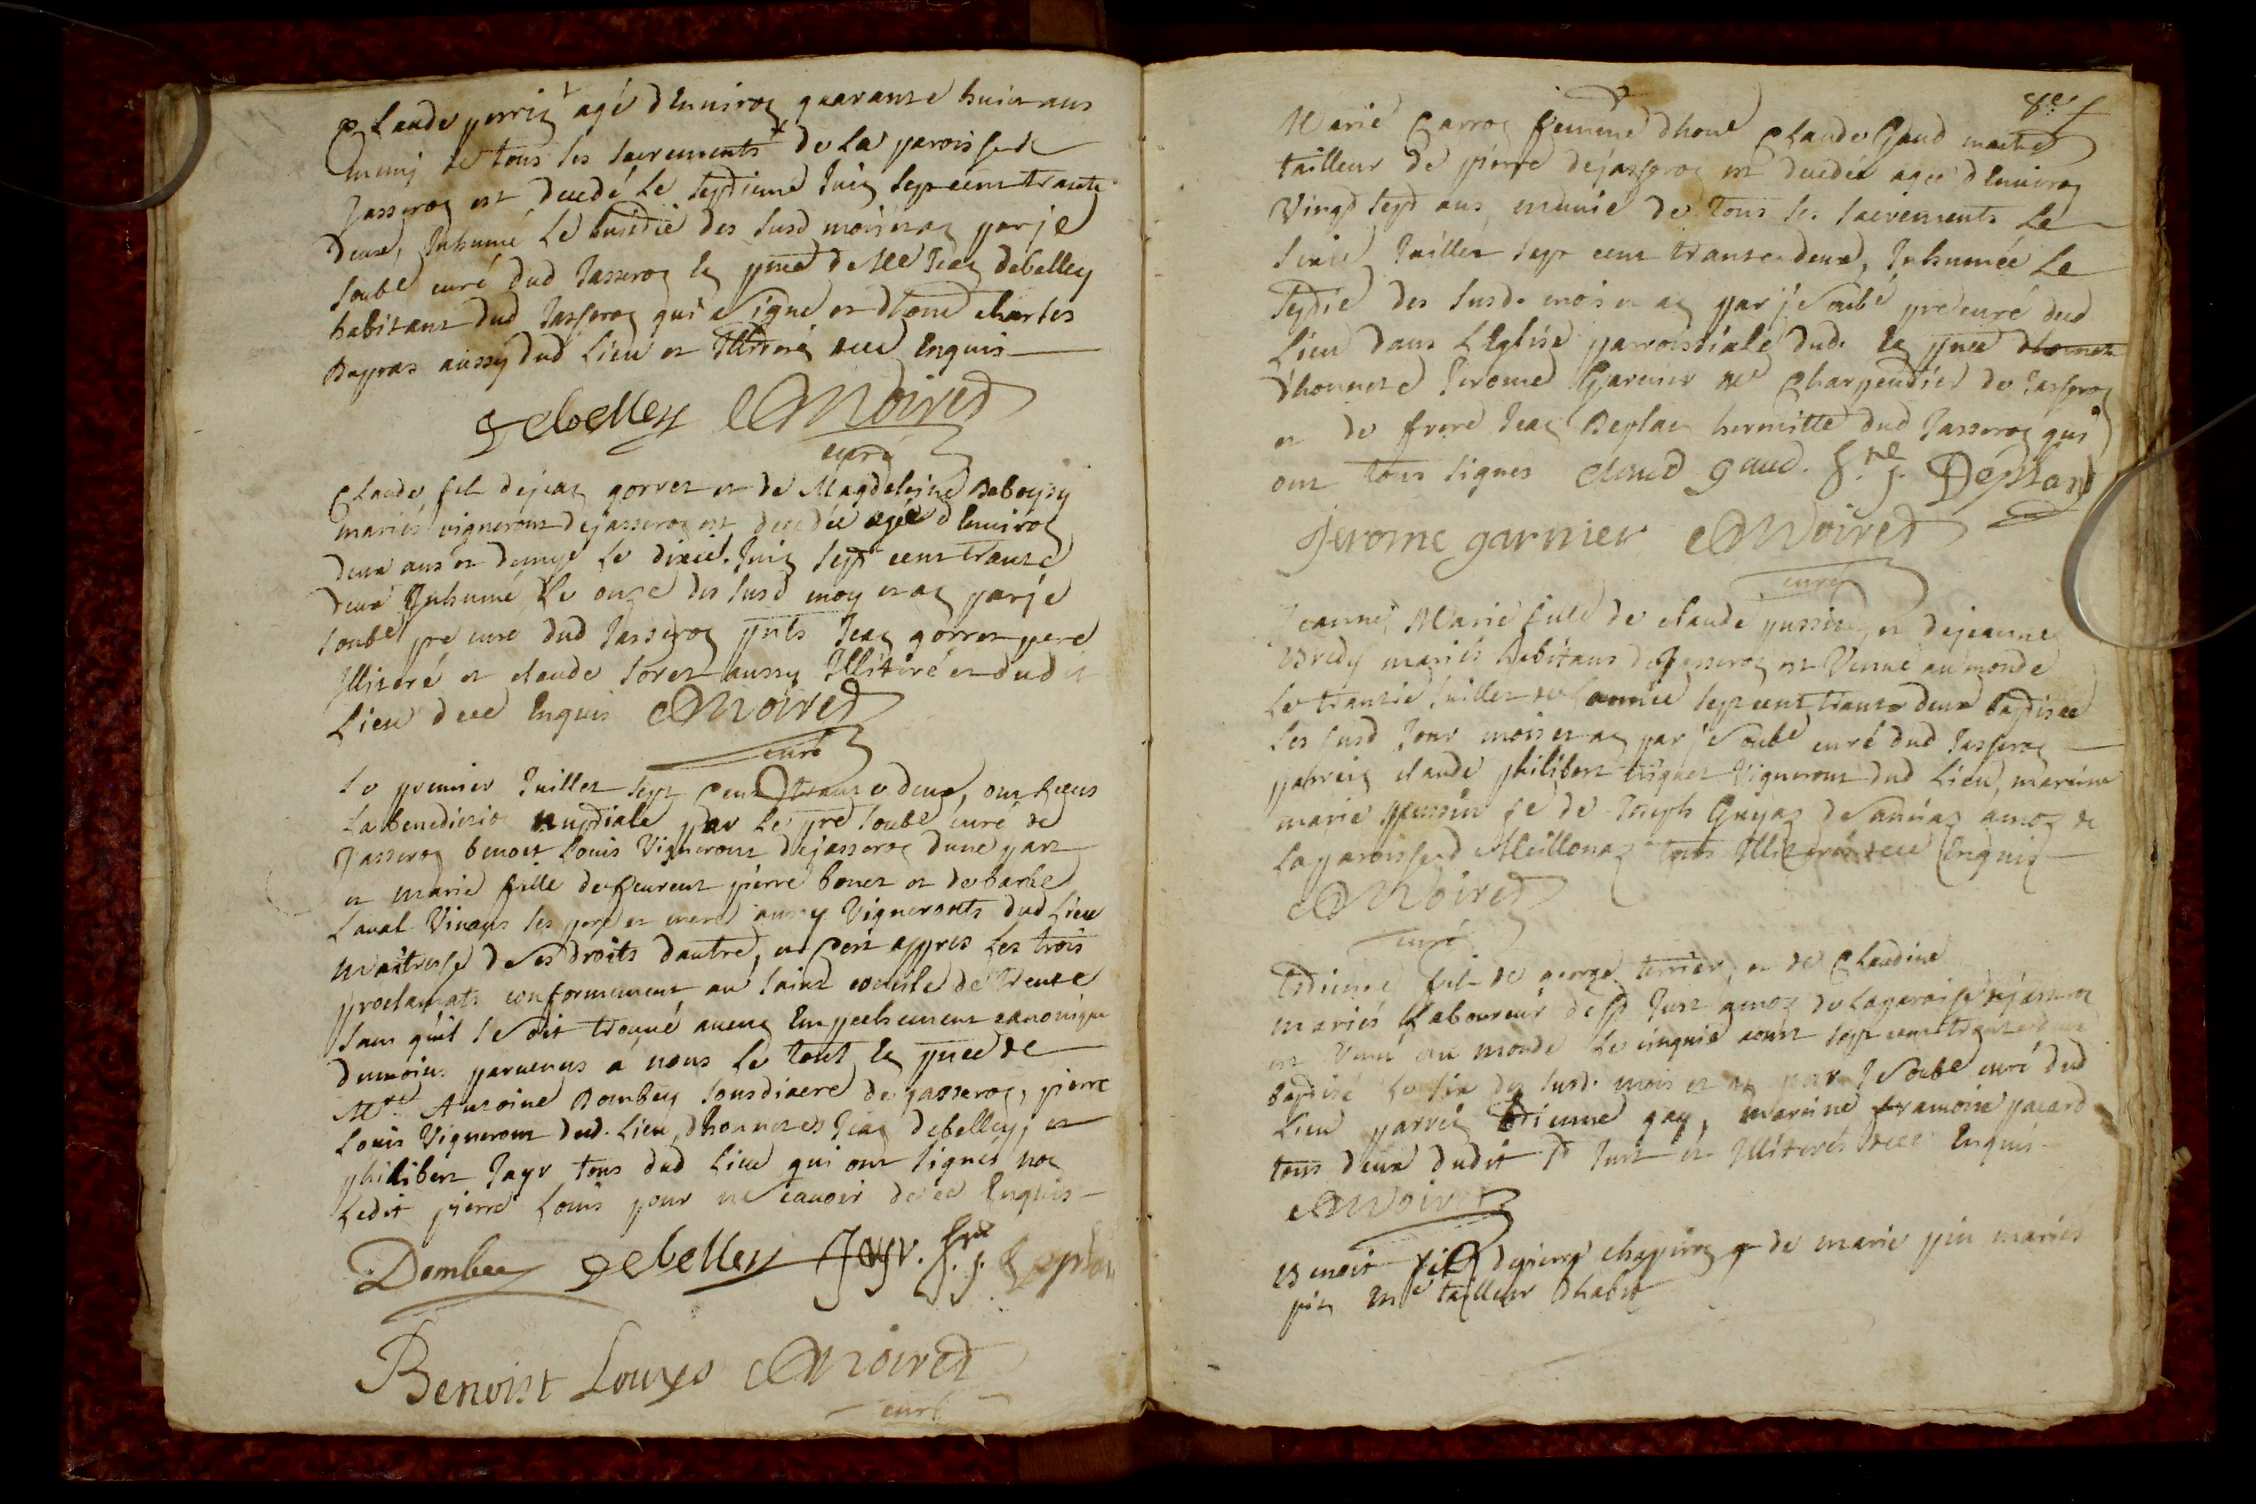 Claude perrin agé denviron quarante huit ans
muny de tous les sacrements de la paroisse de
Jasseron est decedé le septieme Juin sept cent trante
deux, Inhumé le huitie des susd mois et an par je
soubé curé dud Jasseron en pnce de Me Jean debelley
habitant dud Jasseron qui a signé et dhone charles
aussy dud Lieu et Illiteré de ce Enquis
debelley CMoiret
curé
Claude fils dejean gorret et de Magdeleine
mariés vignerons dejasseron est decedée agée denviron
deux ans et demye le dixie. Juin sept cent trante
deux Inhumé le onze des susd moy et an par je
soubé pre curé dud Jasseron pnts Jean gorret pere
Illiteré et claude soret aussy Illiteré et dudit
Lieu de ce Enquis CMoiret
curé
Le premier Juillet sept cent trante deux, ont receus
La benediction nuptiale par le pre soubé curé de
Jasseron benoit Louis Vigneront dejasseron dune part
et marie fille de feurent pierre bonet et de barbe
Laval Vivans ses pere et mere aussy Vignerons dud Lieu
maitresse de ses droits dautre, et cest appres les trois
proclamats conformement au saint concile de trente
sans quil se soit trouvé aucun Empechement canonique
dumoins parvenus a nous le tout en pnce de
Mre Antoine Dombey sousdiacre de jasseron, pierre
Louis Vigneront dud. Lieu, dhonnetes Jean debelley, et
philibert Jayr tous dud Lieu qui ont signés non
Ledit pierre Louis pour ne scavoir de ce Enquis
Dombey debelley Jayr. fre j. Deplan
Benoist Louys CMoiret
curé
8e
Marie Carron femme dhone Claude Gaud maitre
tailleur de pierre dejasseron est decedée agée denviron
Vingt sept ans munie de tous les sacrements Le
sixie Juillet sept cent trante deux, Inhumée Le
septie des susd. mois et an par je soubé pre curé dud
Lieu dans LEglise parroissiale dud. en pnce dhonnete
dhonnete Jerome Garnier Me Charpentier de Jasseron
et de frere Jean Deplan hermitte dud Jasseron qui
ont tous signés claud gaud. fre j. Deplan
Jerome garnier CMoiret
curé
Jeanne Marie fille de claude et dejeanne
Bredy mariés habitans de Jasseron est Venue au monde
Le trantie Juillet de lannée sept cent trante deux baptisée
Les susd Jour mois et an par je soubé curé dud Jasseron
parrein claude philibert Vigneront dud Lieu, mareine
marie fe de Joseph Guyaz de Sanciaz amon de
Laparoisse d Meillonaz tous Illiterés de ce Enquis
CMoiret
curé
Etienne fils de george terrier et de Claudine
mariés Laboureur de St Just amon de Laparoisse dejasseron
est Venu au monde le cinquie aout sept cent trante deux
baptisé Le six des susd. mois et an par Je soubé curé dud
Lieu parrein Etienne gay, mareine francoise pacard
tous deux dudit St Just et Illiterés de ce Enquis
CMoiret
Benoit fils de pierre chapiron et de marie pin mariés
pin Me tailleur Dhabit